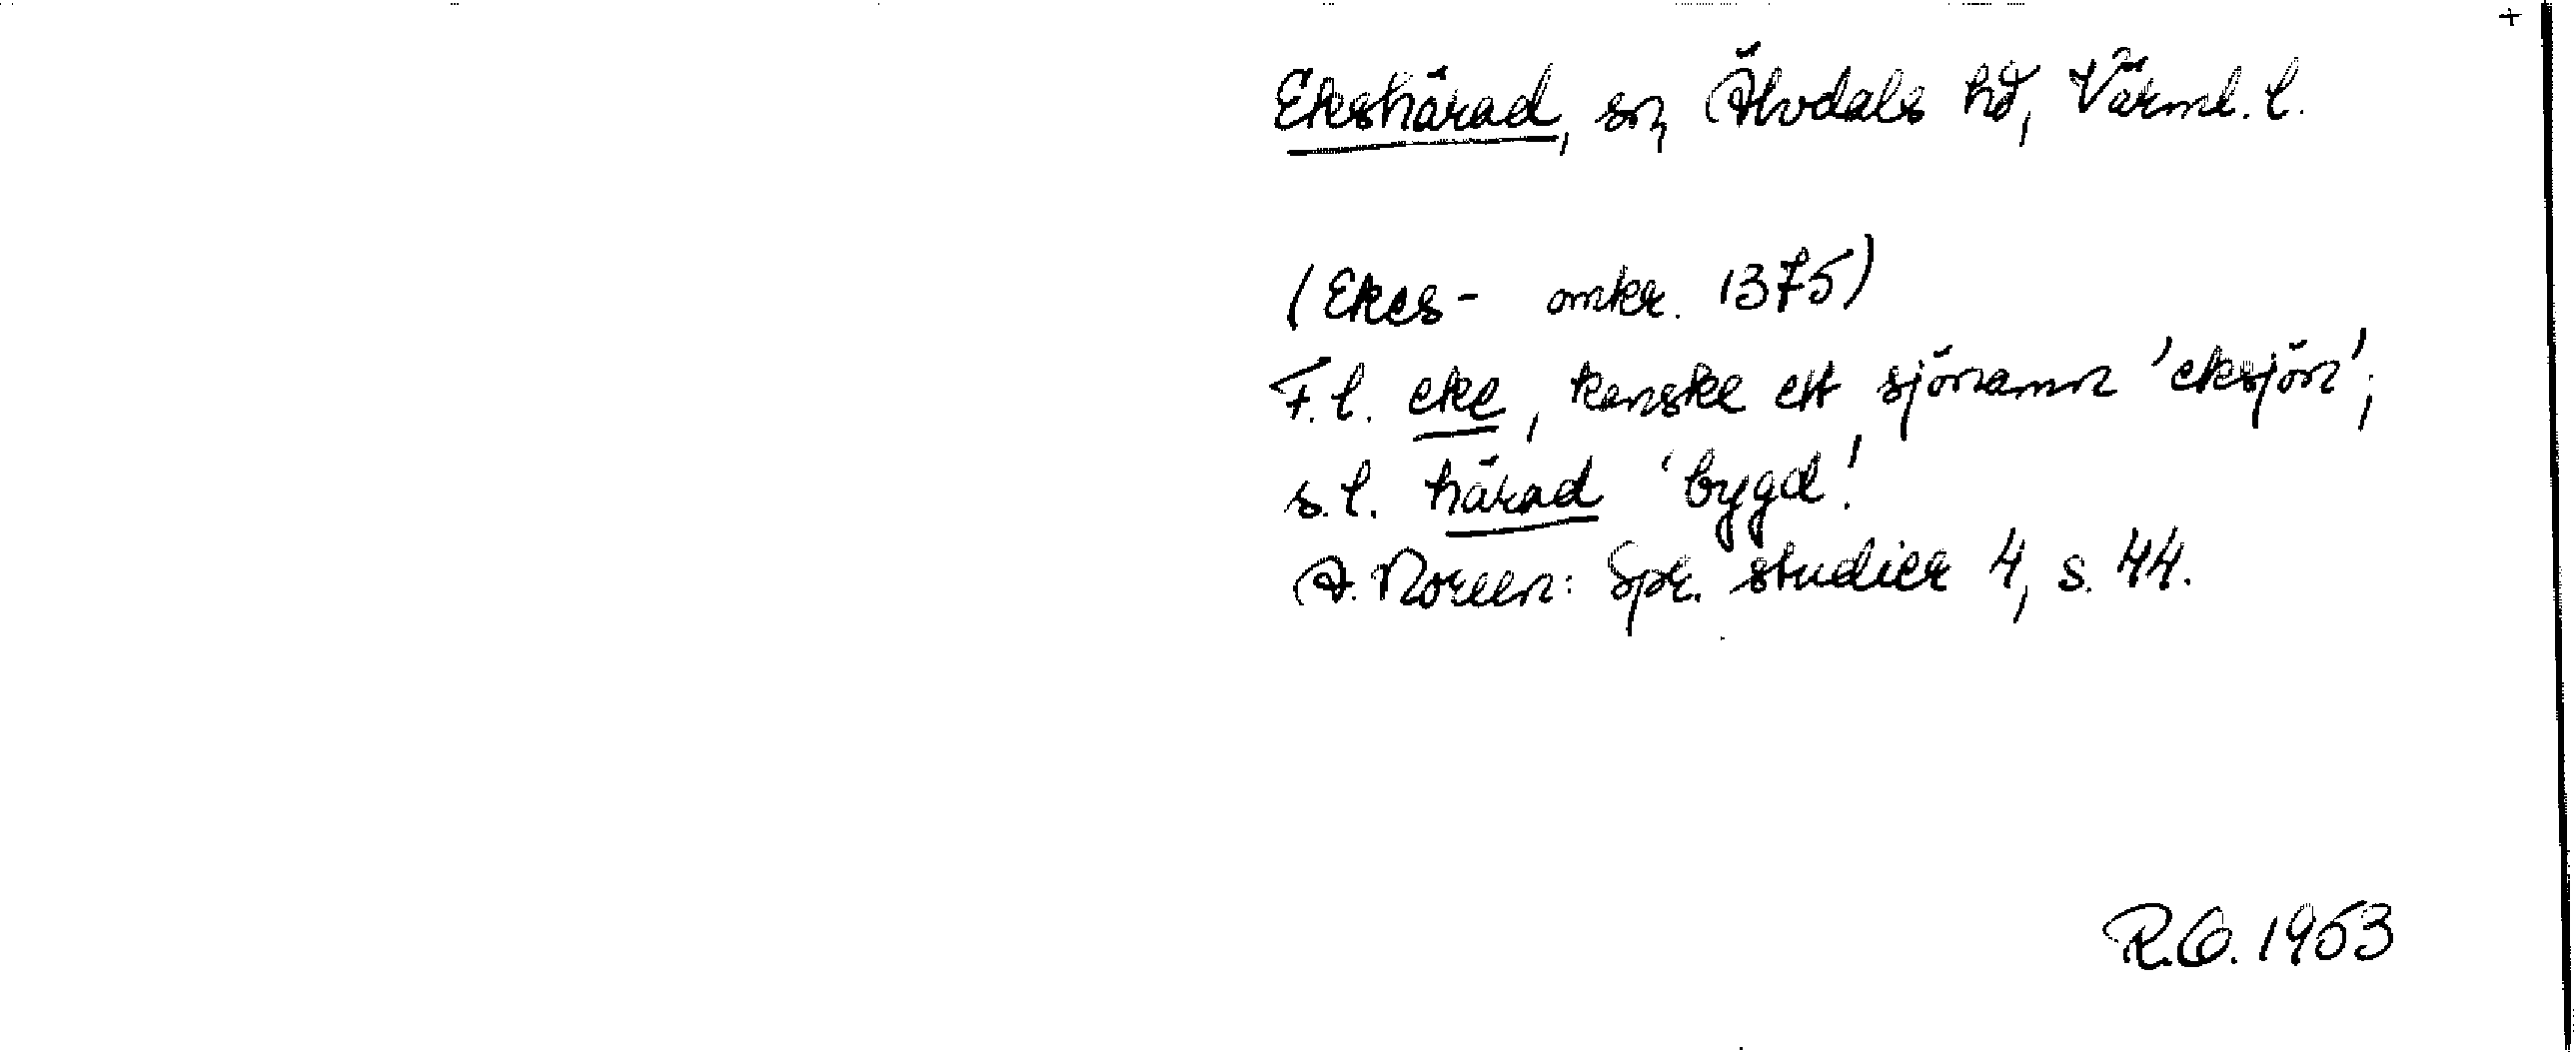 +
Ekshärad, sn, Älvdals hd, Värml. l.
(Ekes- omkr. 1375)
F.l. eke, kanske ett sjönamn 'eksjön';
s.l. härad 'bygd'.
A. Noreen: Spr. studier 4, s. 44.
R.O. 1953